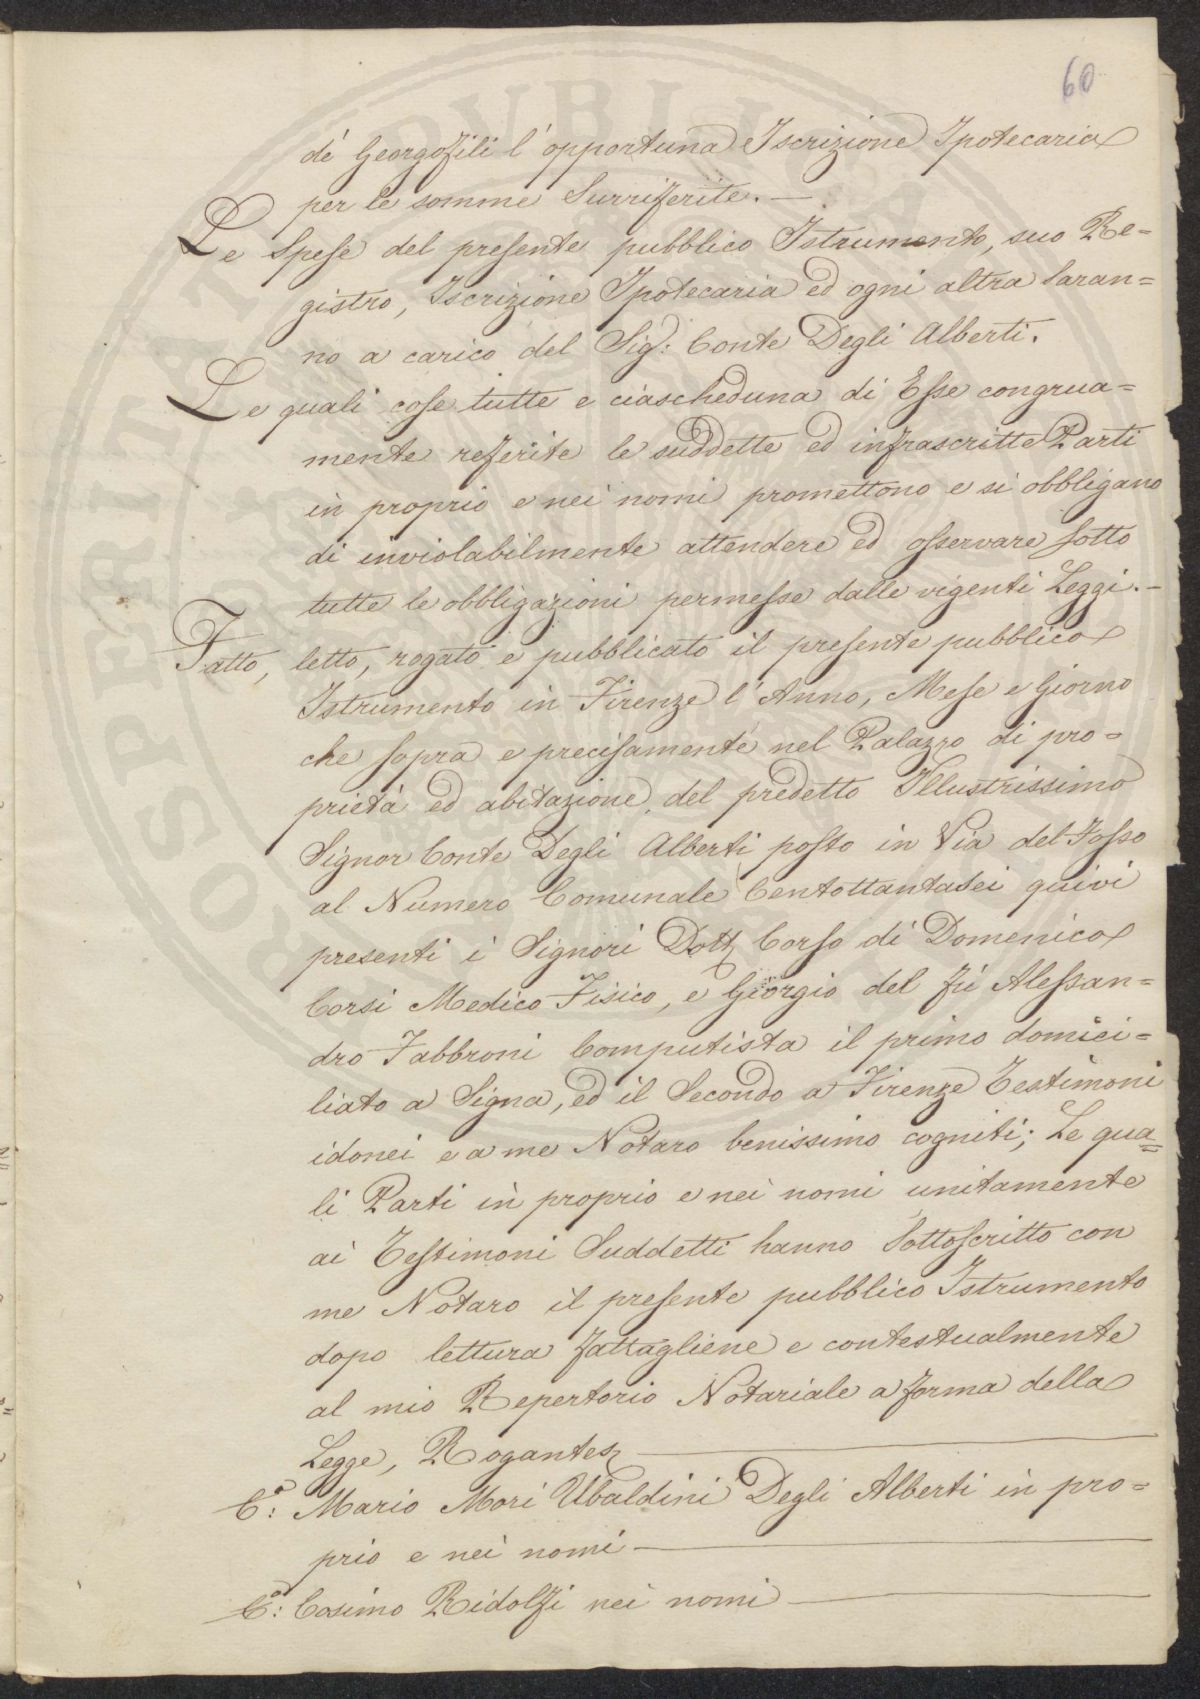 60
de' Georgofili l'opportuna Iscrizione Ipotecaria
per le somme Surriferite. —
Le Spese del presente pubblico Istrumento, suo Re=
gistro, Iscrizione Ipotecaria ed ogni altra saran=
no a carico del Sig: Conte Degli Alberti.
Le quali cose tutte e ciascheduna di Esse congrua=
mente referite le suddette ed infrascritte Parti
in proprio e nei nomi promettono e si obbligano
di inviolabilmente attendere ed osservare sotto
tutte le obbligazioni permesse dalle vigenti Leggi. —
Fatto, letto, rogato e pubblicato il presente pubblico
Istrumento in Firenze l'Anno, Mese e Giorno
che sopra e precisamente nel Palazzo di pro=
prietà ed abitazione del predetto Illustrissimo
Signor Conte Degli Alberti posto in Via del Fosso
al Numero Comunale Centottantasei quivi
presenti i Signori Dott Corso di Domenico
Corsi Medico Fisico, e Giorgio del fù Alessan=
dro Fabbroni Computista il primo domici=
liato a Signa, ed il Secondo a Firenze Testimoni
idonei e a me Notaro benissimo cogniti; Le qua=
li Parti in proprio e nei nomi unitamente
ai Testimoni Suddetti hanno Sottoscritto con
me Notaro il presente pubblico Istrumento
dopo lettura fattagliene e contestualmente
al mio Repertorio Notariale a forma della
Legge, Rogantes
C.º: Mario Mori Ubaldini Degli Alberti in pro=
prio e nei nomi
C.º: Cosimo Ridolfi nei nomi